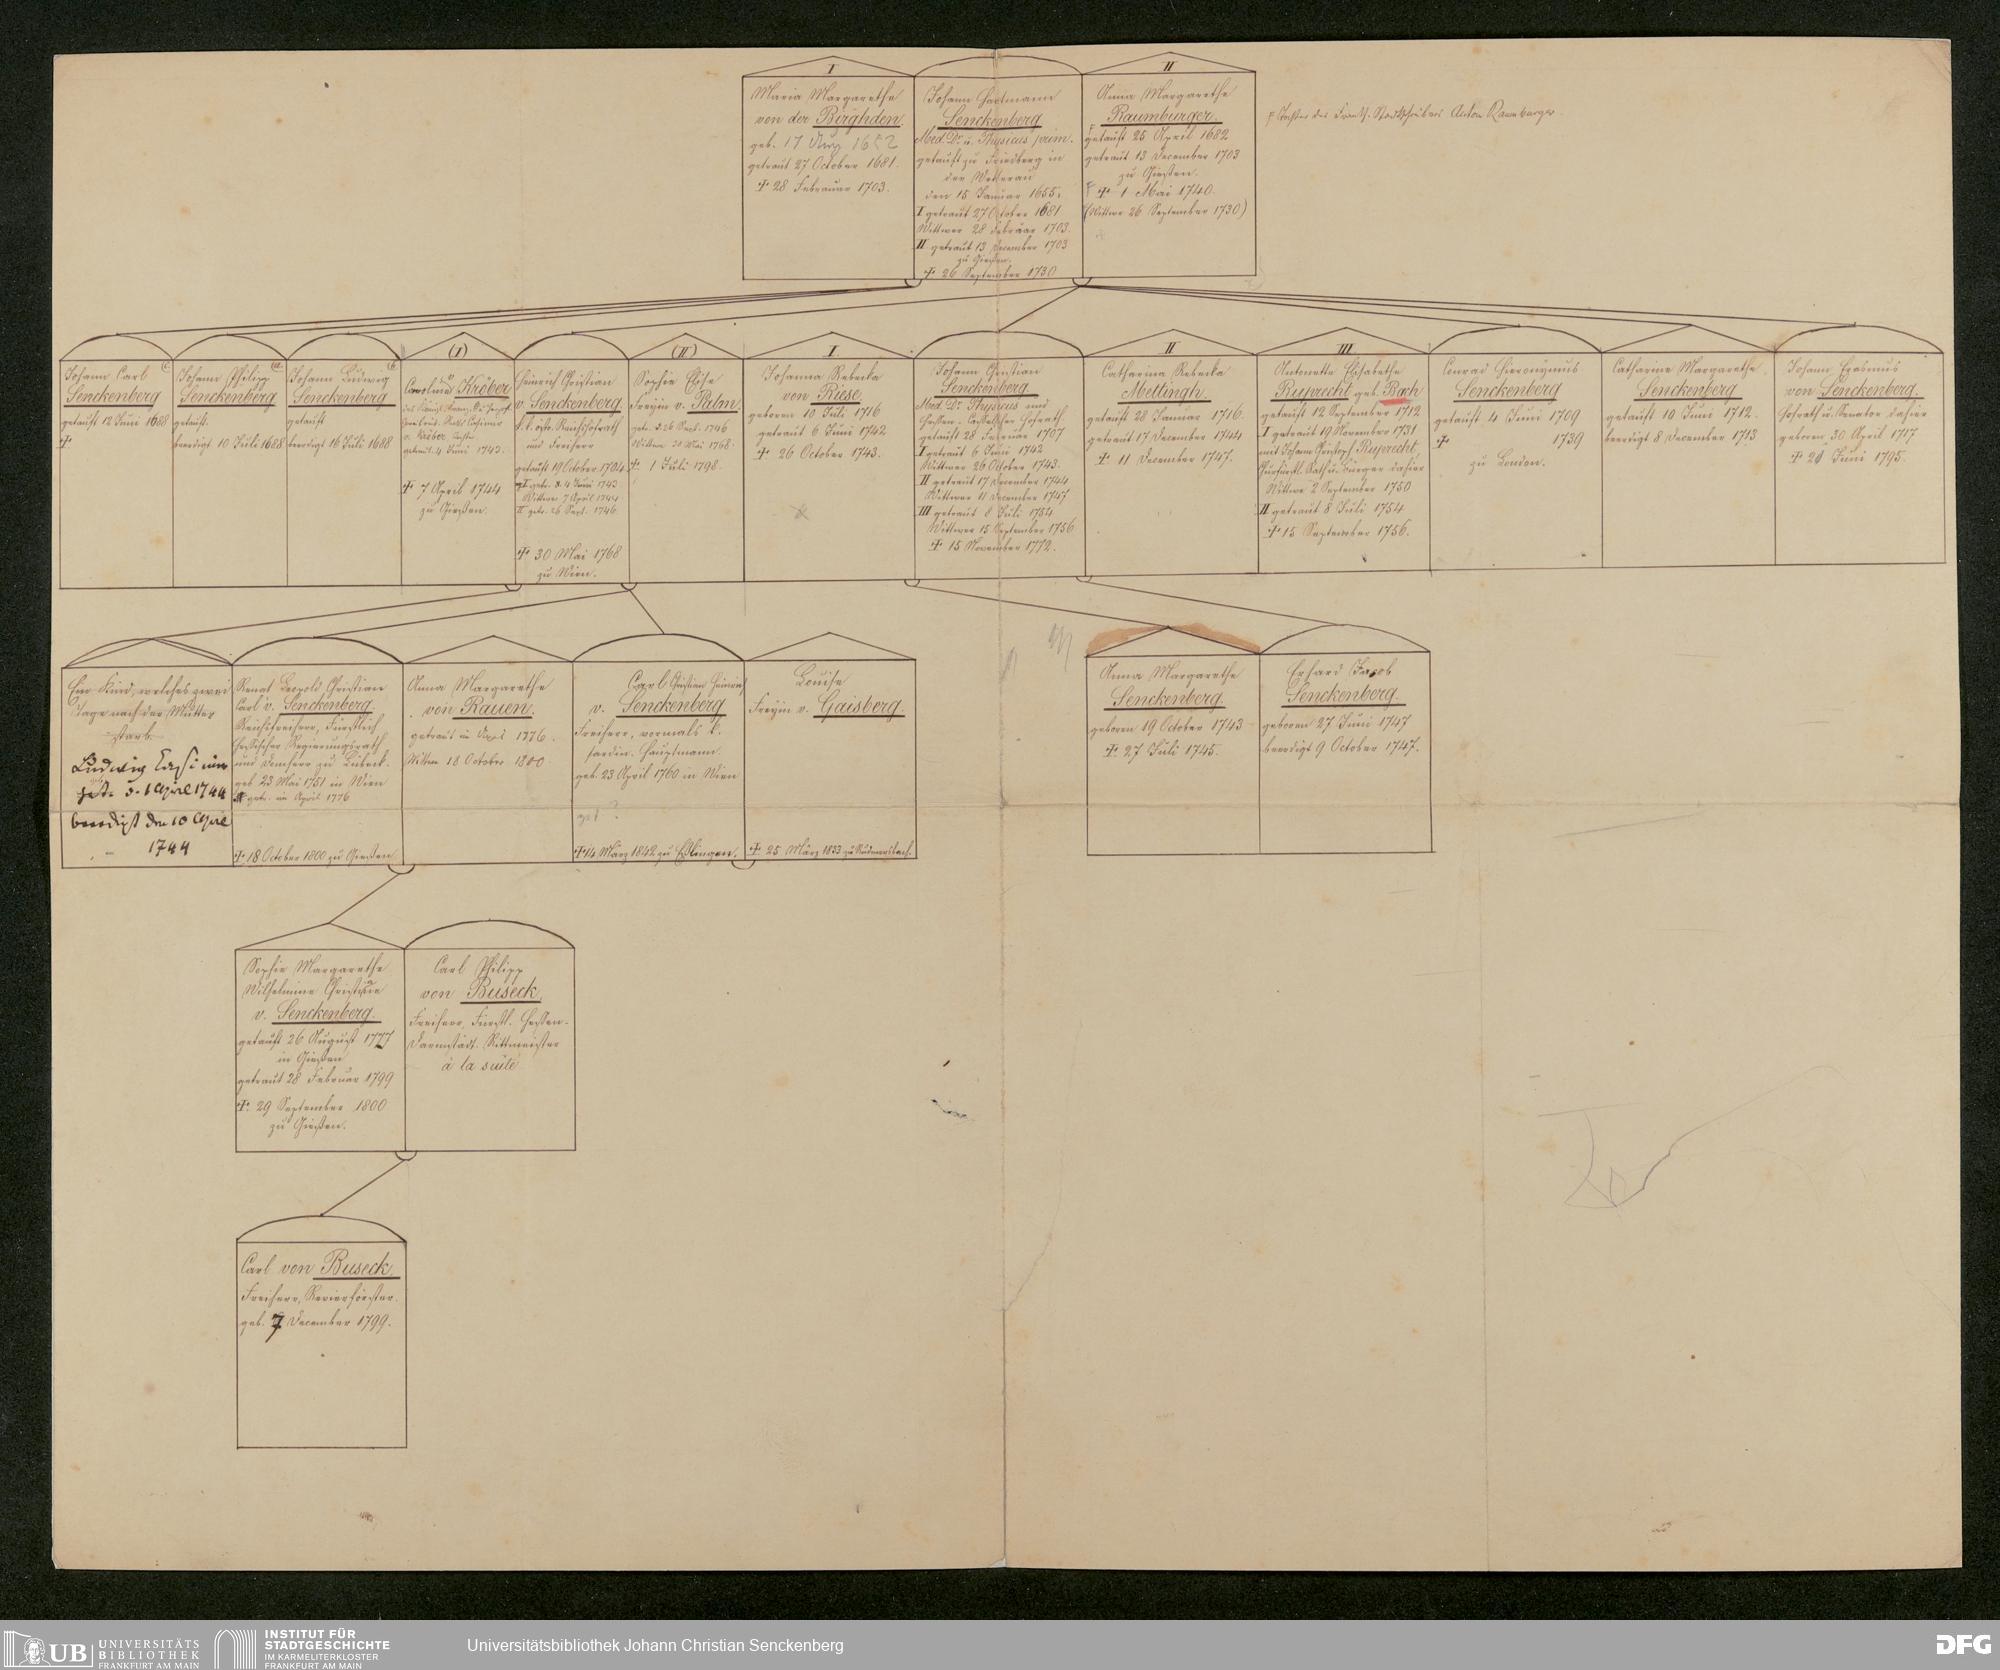 I
Maria Margarethe
von der Birghden.
geb. 17 Aug 1652
getraut 27 October 1681.
† 28 Februar 1703.
Johann Hartmann
Senckenberg
Med. Dr. u. Physicus prim.
getauft zu Friedberg in
der Wetterau
den 15 Januar 1655.
I getraut 27 October 1681
Wittwer 28 Februar 1703.
II getraut 13 December 1703
zu Gießen.
† 26 September 1730
II
Anna Margarethe
Raumburger.
getauft 25 April 1682
getraut 13 December 1703
zu Gießen.
† 1 Mai 1740.
(Wittwe 26 September 1730)
Tochter des Frankf. Stadtschreibers Anton Raumburger.
Johann Carl
Senckenberg
getauft 12 Juni 1688
†
Johann Philipp
Senckenberg
getauft.
beerdigt 10 Juli 1688
Johann Ludwig
Senckenberg
getauft
beerdigt 16 Juli 1688
(I)
v. Kröber
getraut 4 Juni 1743.
† 7 April 1744
zu Gießen.
Heinrich Christian
v. Senckenberg
k. k. östr. Reichshofrath
und Freiherr
getauft 19 October 1704
I getr. d. 4 Juni 1743
Wittwer 7 April 1744
II getr. 26 Sept. 1746.
† 30 Mai 1768
zu Wien.
(II)
Sophie Elise
Freyin v. Palm.
getr. d. 26 Sept. 1746
Wittwe 30 Mai 1768.
† 1 Juli 1798.
I
Johanna Rebecka
von Riese.
geboren 10 Juli 1716
getraut 6 Juni 1742
† 26 October 1743.
Johann Christian
Senckenberg.
Med. Dr. Physicus und
Hessen-Casselscher Hofrath
getauft 28 Februar 1707
I getraut 6 Juni 1742
Wittwer 26 October 1743.
II getraut 17 December 1744
Wittwer 11 December 1747
III getraut 8 Juli 1754
Wittwer 15 September 1756
† 15 November 1772.
II
Catharina Rebecka
Mettingh.
getauft 28 Januar 1716.
getraut 17 December 1744
† 11 December 1747.
III
Antonette Elisabethe
Ruprecht geb. Bach
getauft 12 September 1712
I getraut 19 November 1731
mit Johann Christoph Ruprecht,
Churfürstl. Rath u. Bürger dahier
Wittwe 2 September 1750
II getraut 8 Juli 1754
† 15 September 1756.
Conrad Hieronymus
Senckenberg
getauft 4 Juni 1709
† 1739
zu London.
Catharine Margarethe
Senckenberg
getauft 10 Juni 1712.
beerdigt 8 December 1713
Johann Erasmus
von Senckenberg.
Hofrath u. Senator dahier
geboren 30 April 1717
† 21 Juni 1795.
Ein Kind, welches zwei
Tage nach der Mutter
starb.
Ludwig Casimir
get. d. 6 April 1744
beerdigt den 10 April
1744
Renat Leopold Christian
Carl v. Senckenberg.
Reichsfreiherr, Fürstlich
Hessischer Regierungsrath
und Domherr zu Lübeck.
geb. 23 Mai 1751 in Wien
getr. im April 1776
† 18 October 1800 zu Gießen
Anna Margarethe
von Rauen.
getraut im April 1776.
Wittwe 18 October 1800.
Carl Christian Heinrich
v. Senckenberg
Freiherr, vormals k.
sardin. Hauptmann.
geb. 23 April 1760 in Wien
get ?
† 14 März 1842 zu Eßlingen.
Louise
Freyin v. Gaisberg.
Anna Margarethe
Senckenberg.
geboren 19 October 1743
† 27 Juli 1745.
Erhard Jacob
Senckenberg.
geboren 27 Juni 1747
beerdigt 9 October 1747.
Sophie Margarethe
Wilhelmine Christine
v. Senckenberg.
getauft 26 August 1777
in Gießen
getraut 28 Februar 1799
† 29 September 1800
zu Gießen.
Carl Philipp
von Buseck
Freiherr, Fürstl. Hessen-
Darmstädt. Rittmeister
à la suite
Carl von Buseck.
Freiherr, Revierförster.
geb. 7 December 1799.
UB UNIVERSITÄTS
BIBLIOTHEK
FRANKFURT AM MAIN
INSTITUT FÜR
STADTGESCHICHTE
IM KARMELITERKLOSTER
FRANKFURT AM MAIN
Universitätsbibliothek Johann Christian Senckenberg
DFG